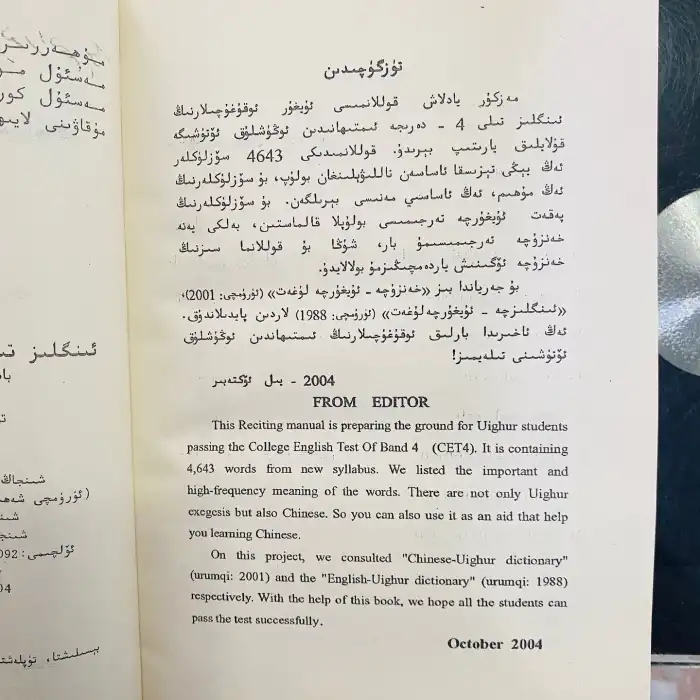 تۈزگۈچىدىن
مەزكۇر يادلاش قوللانمىسى ئۇيغۇر ئوقۇغۇچىلارنىڭ
ئىنگلىز تىلى 4 - دەرىجە ئىمتىھانىدىن ئوڭۇشلۇق ئۆتۈشىگە
قۇلايلىق يارىتىپ بېرىدۇ. قوللانمىدىكى 4643 سۆزلۈكلەر
ئەڭ يېڭى تېزىسقا ئاساسەن تاللىۋېلىنغان بولۇپ، بۇ سۆزلۈكلەرنىڭ
ئەڭ مۇھىم، ئەڭ ئاساسىي مەنىسى بېرىلگەن. بۇ سۆزلۈكلەرنىڭ
پەقەت ئۇيغۇرچە تەرجىمىسى بولۇپلا قالماستىن، بەلكى يەنە
خەنزۇچە تەرجىمىسىمۇ بار، شۇڭا بۇ قوللانما سىزنىڭ
خەنزۇچە ئۆگىنىش ياردەمچىڭىزمۇ بولالايدۇ.
بۇ جەرياندا بىز «خەنزۇچە - ئۇيغۇرچە لۇغەت» (ئۈرۈمچى: 2001)،
«ئىنگلىزچە - ئۇيغۇرچە لۇغەت» (ئۈرۈمچى: 1988) لاردىن پايدىلاندۇق.
ئەڭ ئاخىرىدا بارلىق ئوقۇغۇچىلارنىڭ ئىمتىھاندىن ئوڭۇشلۇق
ئۆتۈشىنى تىلەيمىز!
2004 - يىل ئۆكتەبىر
FROM EDITOR
This Reciting manual is preparing the ground for Uighur students
passing the College English Test Of Band 4 (CET4). It is containing
4,643 words from new syllabus. We listed the important and
high-frequency meaning of the words. There are not only Uighur
exegesis but also Chinese. So you can also use it as an aid that help
you learning Chinese.
On this project, we consulted "Chinese-Uighur dictionary"
(urumqi: 2001) and the "English-Uighur dictionary" (urumqi: 1988)
respectively. With the help of this book, we hope all the students can
pass the test successfully.
October 2004
مەسئۇل
مەسئۇل
مۇقاۋىنى
ئىنگلىز
(ئۈرۈمچى
ئۆلچىمى:
بېسىلىشتا،